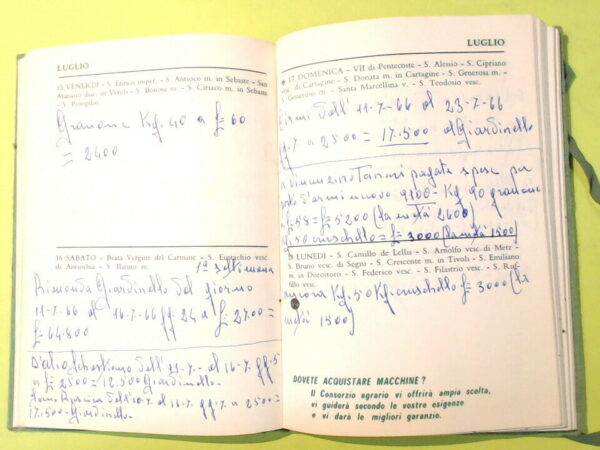 LUGLIO
15 VENERDI - S. Enrico imper. - S. Antioco m. in Sebaste - Sant'
Atanasio diac. in Vercelli - S. Bonosa m. - S. Ciriaco m. in Sebaste
- S. Pompilio
Granone Kg. 40 a £= 60
= 2400
16 SABATO - Beata Vergine del Carmine - S. Eustachio vesc.
di Antiochia - S. Ilarino m.
1ª settimana
Rimonda Giardinello del giorno
11-7-66 al 16-7-66 gg. 24 a £= 2700=
£= 64.800
D'alio Sebastiano dell'11-7- al 16-7. gg. 5
a £= 2500= 12.500 Giardinello.
dell'10.7. al 16.7. gg. 7. a 2500=
17.500 - Giardinello
LUGLIO
17 DOMENICA - VII di Pentecoste - S. Alessio - S. Cipriano
vesc. di Cartagine - S. Donata m. in Cartagine - S. Generosa m. -
S. Generoso m. - Santa Marcellina v. - S. Teodosio vesc.
dell'11-7-66 al 23-7-66
gg. 7 a 2500 = 17.500 al Giardinello
a Vincenzino pagate spese per
nuovo 9100 - Kg 90 granone
a £= 58 = £= 5200 (la metà 2600)
Kg. 50 cruschello = £= 3000 (la metà 1500)
18 LUNEDI - S. Camillo de Lellis - S. Arnolfo vesc. di Metz -
S. Bruno vesc. di Segni - S. Crescente m. in Tivoli - S. Emiliano
m. in Dorostoro - S. Federico vesc. - S. Filastrio vesc. - S. Ruf-
fillo vesc.
Kg. 50 Kg. cruschello £= 3000 (la
metà 1500)
DOVETE ACQUISTARE MACCHINE?
Il Consorzio agrario vi offrirà ampia scelta,
vi guiderà secondo le vostre esigenze
e vi darà le migliori garanzie.